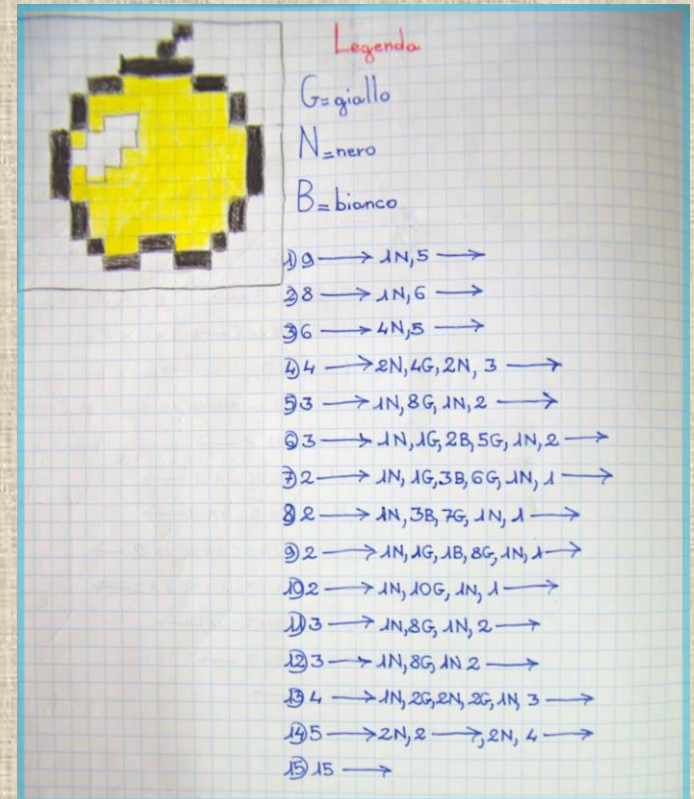 Legenda
G=giallo
N=nero
B=bianco
1) 9 → 1N, 5 →
2) 8 → 1N, 6 →
3) 6 → 4N, 5 →
4) 4 → 2N, 4G, 2N, 3 →
5) 3 → 1N, 8G, 1N, 2 →
6) 3 → 1N, 1G, 2B, 5G, 1N, 2 →
7) 2 → 1N, 1G, 3B, 6G, 1N, 1 →
8) 2 → 1N, 3B, 7G, 1N, 1 →
9) 2 → 1N, 1G, 1B, 8G, 1N, 1 →
10) 2 → 1N, 10G, 1N, 1 →
11) 3 → 1N, 8G, 1N, 2 →
12) 3 → 1N, 8G, 1N 2 →
13) 4 → 1N, 2G, 2N, 2G, 1N, 3 →
14) 5 → 2N, 2 →, 2N, 4 →
15) 15 →